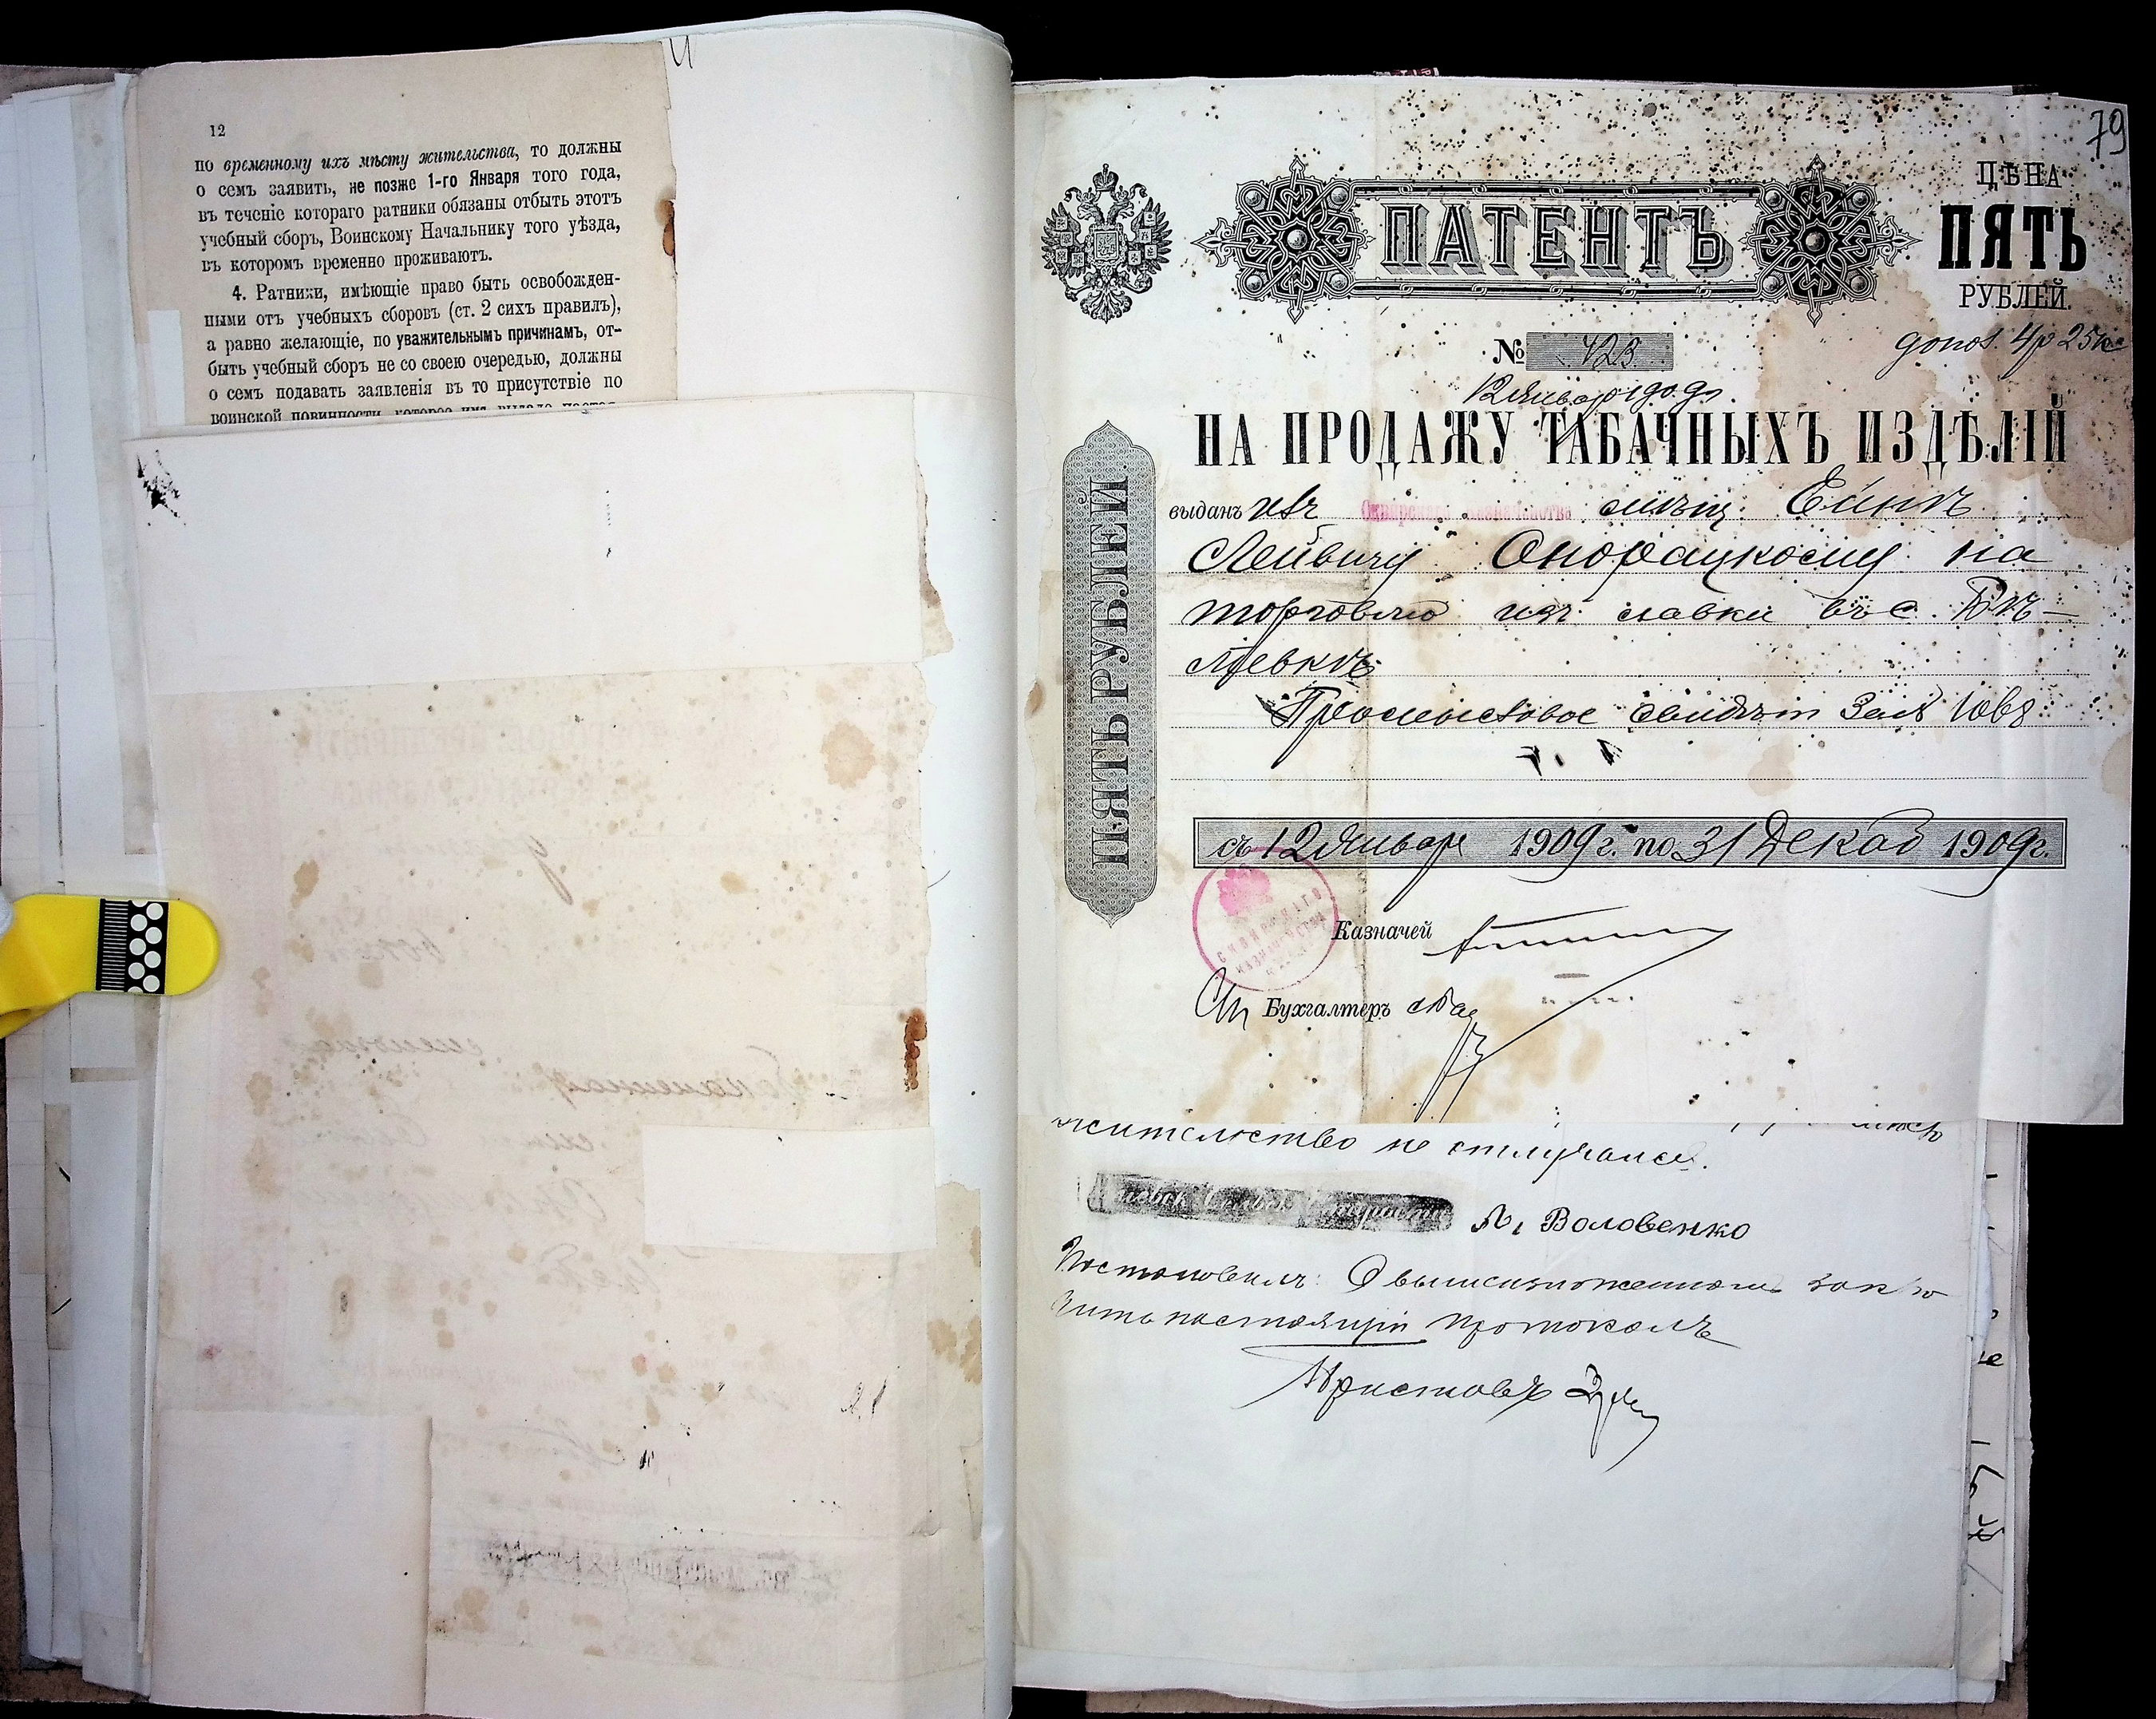 12
по временному ихъ мѣсту жительства, то должны
о семъ заявить, не позже 1-го Января того года,
въ теченіе котораго ратники обязаны отбыть этотъ
учебный сборъ, Воинскому Начальнику того уѣзда,
въ которомъ временно проживаютъ.
4. Ратники, имѣющіе право быть освобожден-
ными отъ учебныхъ сборовъ (ст. 2 сихъ правилъ),
а равно желающіе, по уважительнымъ причинамъ, от-
быть учебный сборъ не со своею очередью, должны
о семъ подавать заявленія въ то присутствіе по
воинской повинности, которое имъ выдало
79
ПАТЕНТЪ
ЦѢНА
ПЯТЬ
РУБЛЕЙ.
4р 25к
№ 423
12 Января 1909 г.
НА ПРОДАЖУ ТАБАЧНЫХЪ ИЗДѢЛІЙ
ПЯТЬ РУБЛЕЙ.
выданъ изъ Сквирскаго Казначейства мѣщ.
на
торговлю изъ лавки въ с.
Промысловое свидѣт
съ 12 Января 1909 г. по 31 Декаб 1909 г.
СКВИРСКАГО КАЗНАЧЕЙСТВА
Казначей
Бухгалтеръ
жительство не отлучался.
Воловенко
Постановилъ: О вышеизложенномъ заклю
чить настоящій протоколъ
Приставъ